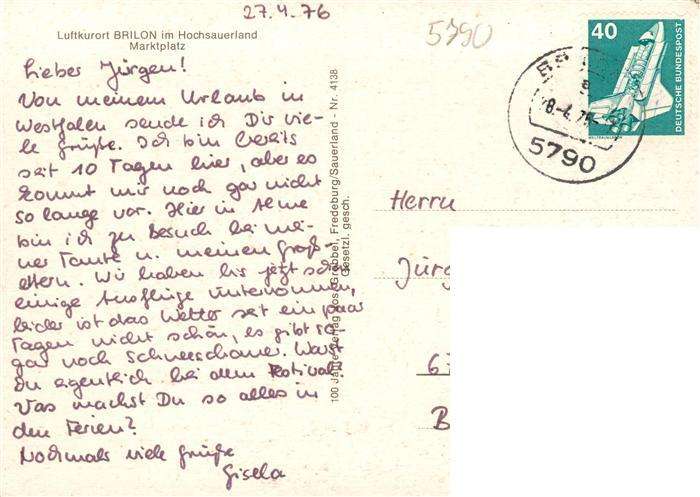 27.4.76
5790
Luftkurort BRILON im Hochsauerland
Marktplatz
Lieber Jürgen!
Von meinem Urlaub in
Westfalen sende ich Dir vie-
le Grüße. Ich bin bereits
seit 10 Tagen hier, aber es
kommt mir noch gar nicht
so lange vor. Hier in Alme
bin ich zu Besuch bei mei-
ner Tante u. meinen Groß-
eltern. Wir haben bis jetzt schon
einige Ausflüge unternommen,
leider ist das Wetter seit ein paar
Tagen nicht schön, es gibt so
gar noch Schneeschauer. Warst
Du eigentlich bei dem Festival?
Was machst Du so alles in
den Ferien?
Nochmals viele Grüße
Gisela
100 Jahre Verlag Jos. Grobbel, Fredeburg/Sauerland - Nr. 4138
Gesetzl. gesch.
40
DEUTSCHE BUNDESPOST
5790
Herrn
Jürg
B